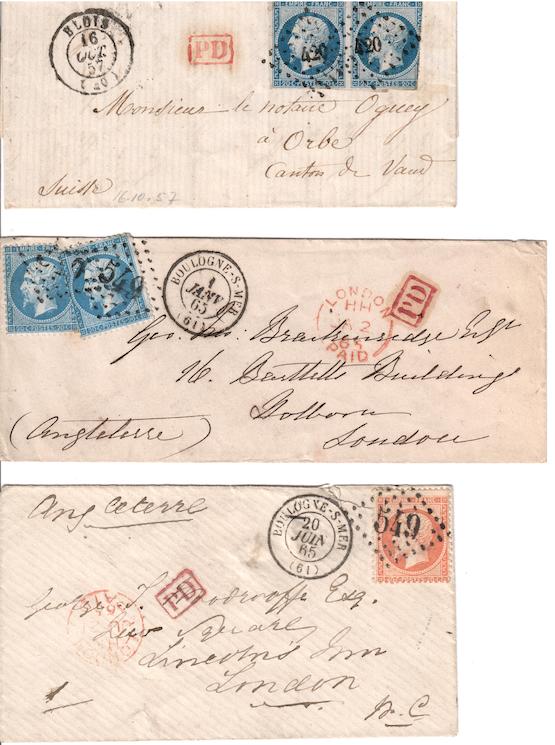 BLOIS
16
OCT.
57
(40)
PD
EMPIRE FRANC
EMPIRE FRANC
420
420
20 C POSTES 20 C
20 C POSTES 20 C
Monsieur le notaire
à Orbe
Canton de Vaud
Suisse
16-10-57
549
20 C POSTES 20 C
20 C POSTES 20 C
BOULOGNE-S-MER
1
JANV
65
(61)
LONDON
HH
2
65
PAID
PD
Geo. Esqr
16. Bartletts Buildings
Holborn
London
(Angleterre)
Angleterre
BOULOGNE-S-MER
20
JUIN
65
(61)
EMPIRE FRANC
549
PD
George T. Woodrooffe Esq.
New Square
Lincoln's Inn
London
W.C
1